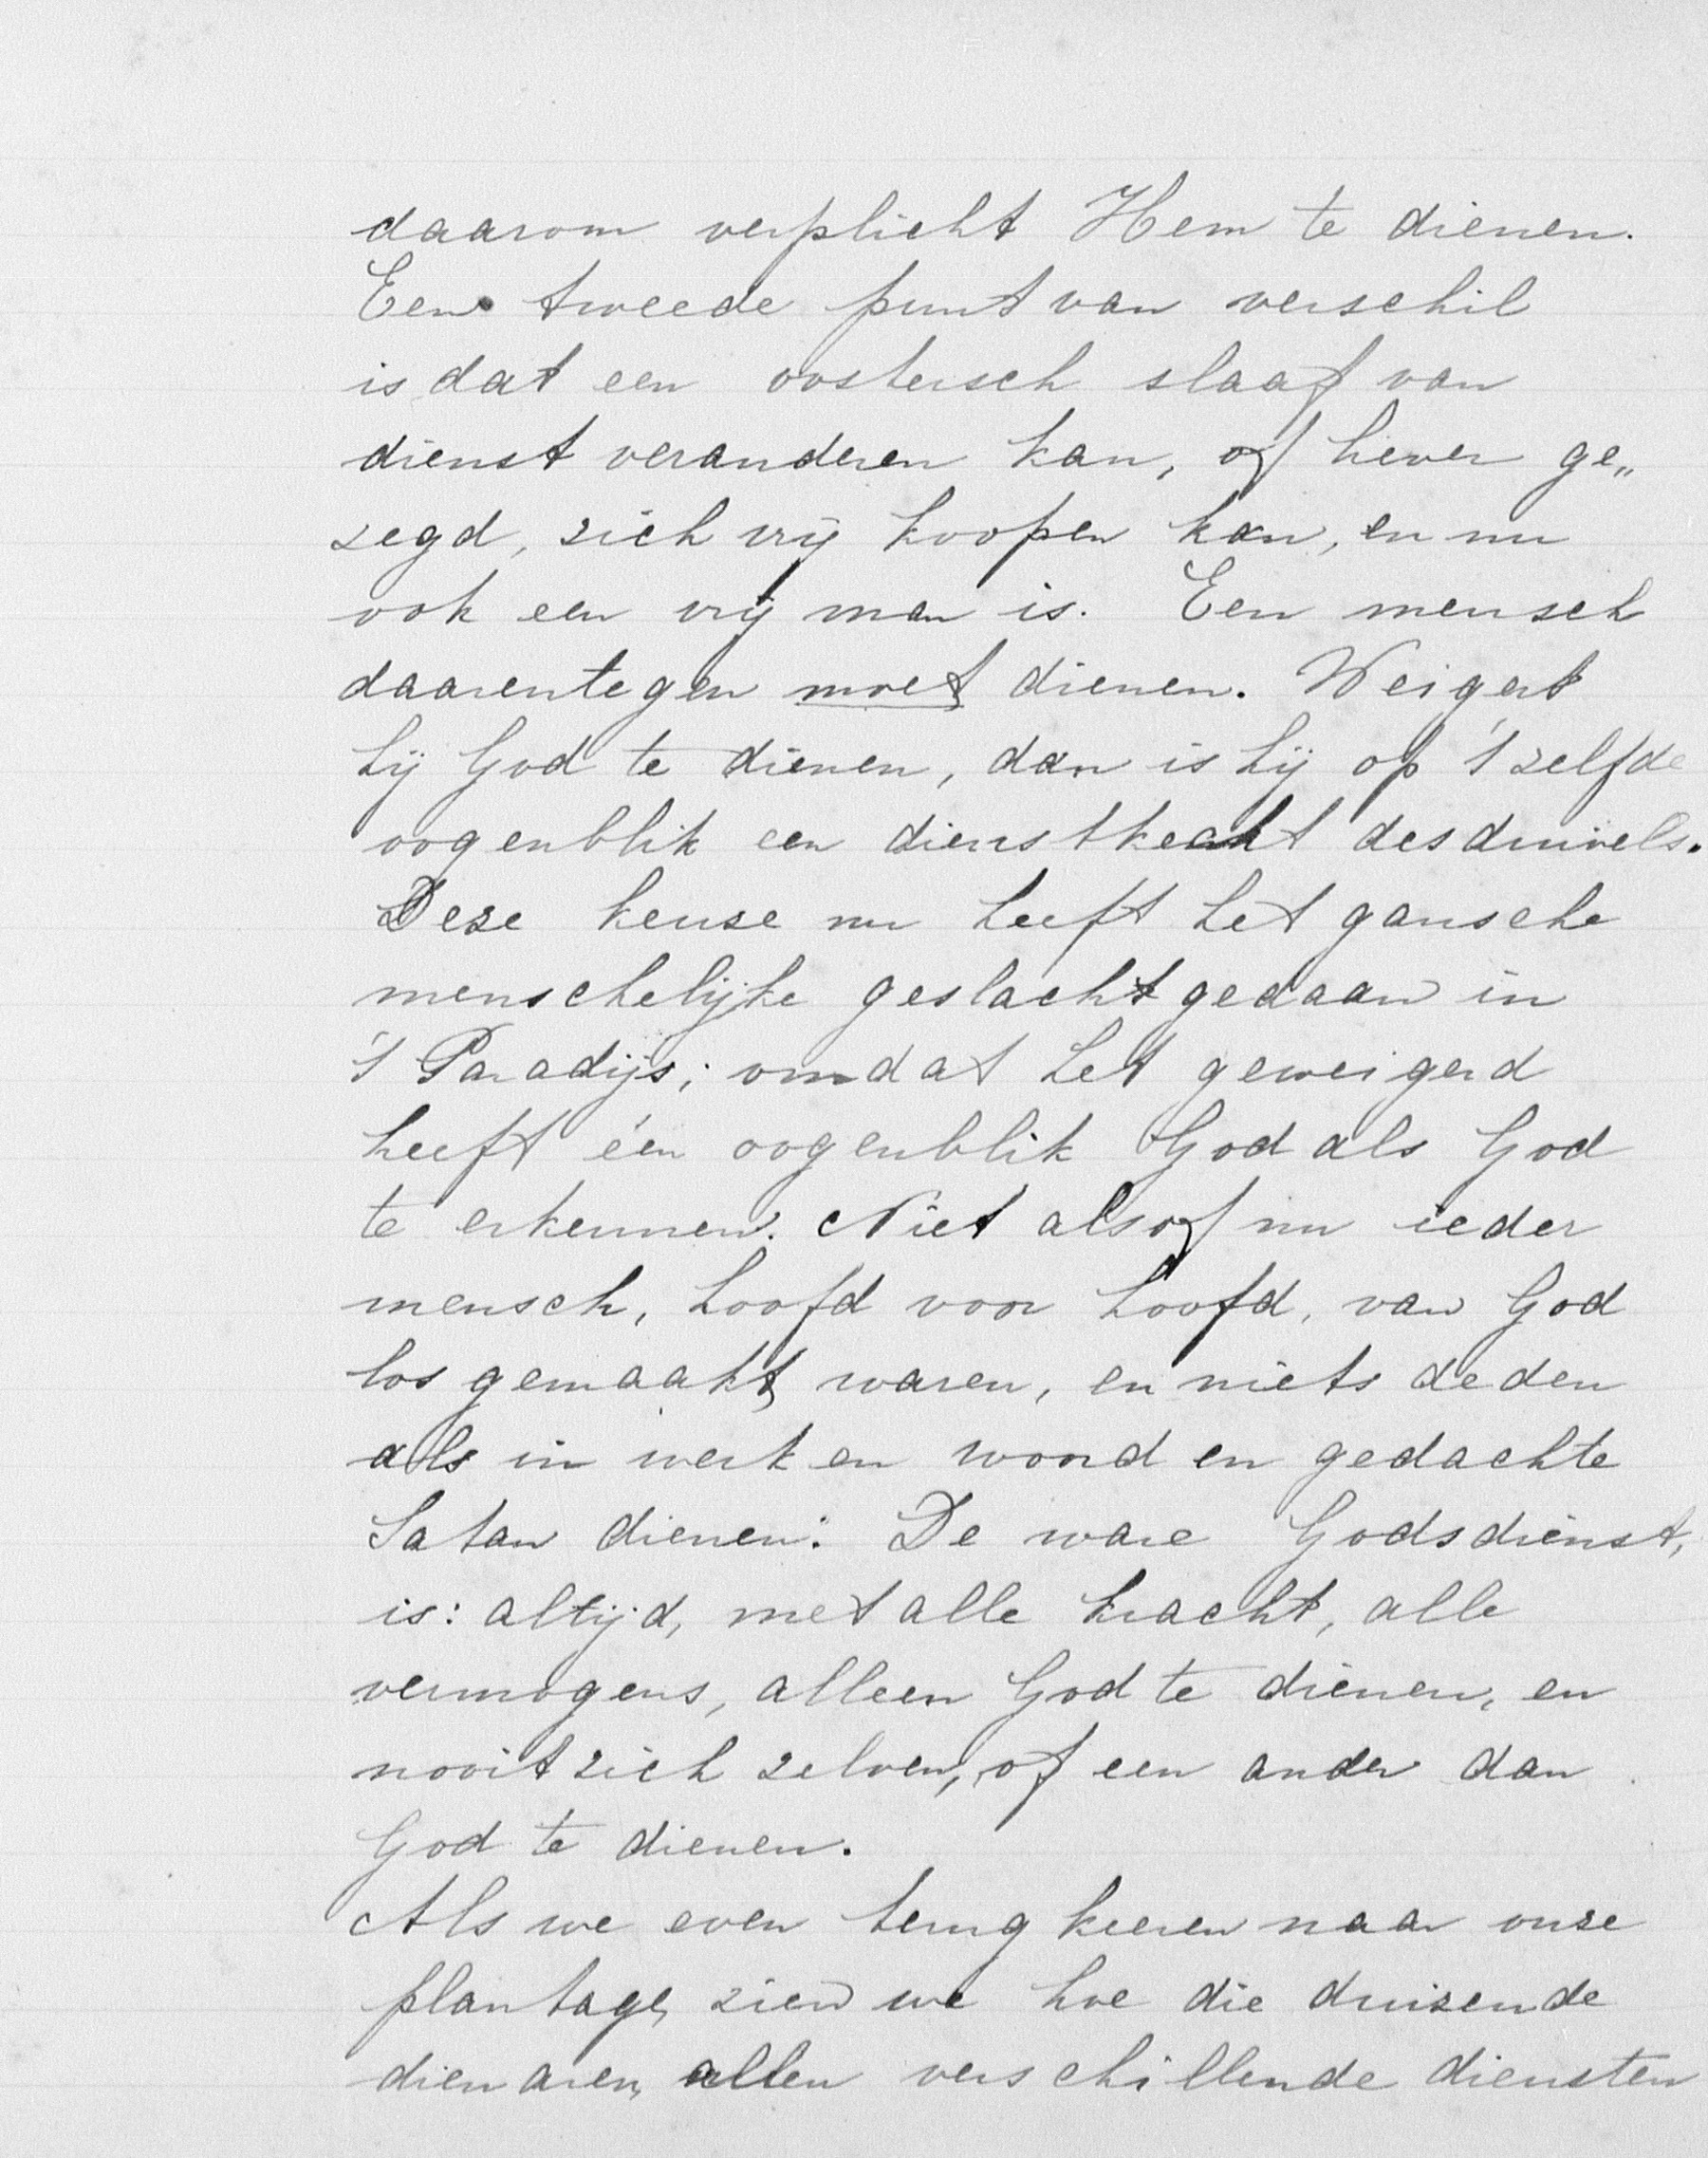 daarom verplicht Hem te dienen.
Een tweede punt van verschil
is dat een oostersch slaaf van
dienst veranderen kan, of liever ge„
zegd, zich vrij koopen kan, en nu
ook een vrij man is. Een mensch
daarentegen moet dienen. Weigert
hij God te dienen, dan is hij op 't zelfde
oogenblik een dienstkecht des duivels.
Deze keuse nu heeft het gansche
menschelijke geslacht gedaan in
't Paradijs; omdat het geweigerd
heeft één oogenblik God als God
te erkennen. Niet alsof nu ieder
mensch, hoofd voor hoofd, van God
los gemaakt waren, en niets deden
als in werk en woord en gedachte
Satan dienen. De ware Godsdienst,
is: altijd, met alle kracht, alle
vermogens, alleen God te dienen, en
nooit zich zelven, of een ander dan
God te dienen.
Als we even terug keeren naar onze
plantage, zien we hoe die duizende
dienaren, allen verschillende diensten